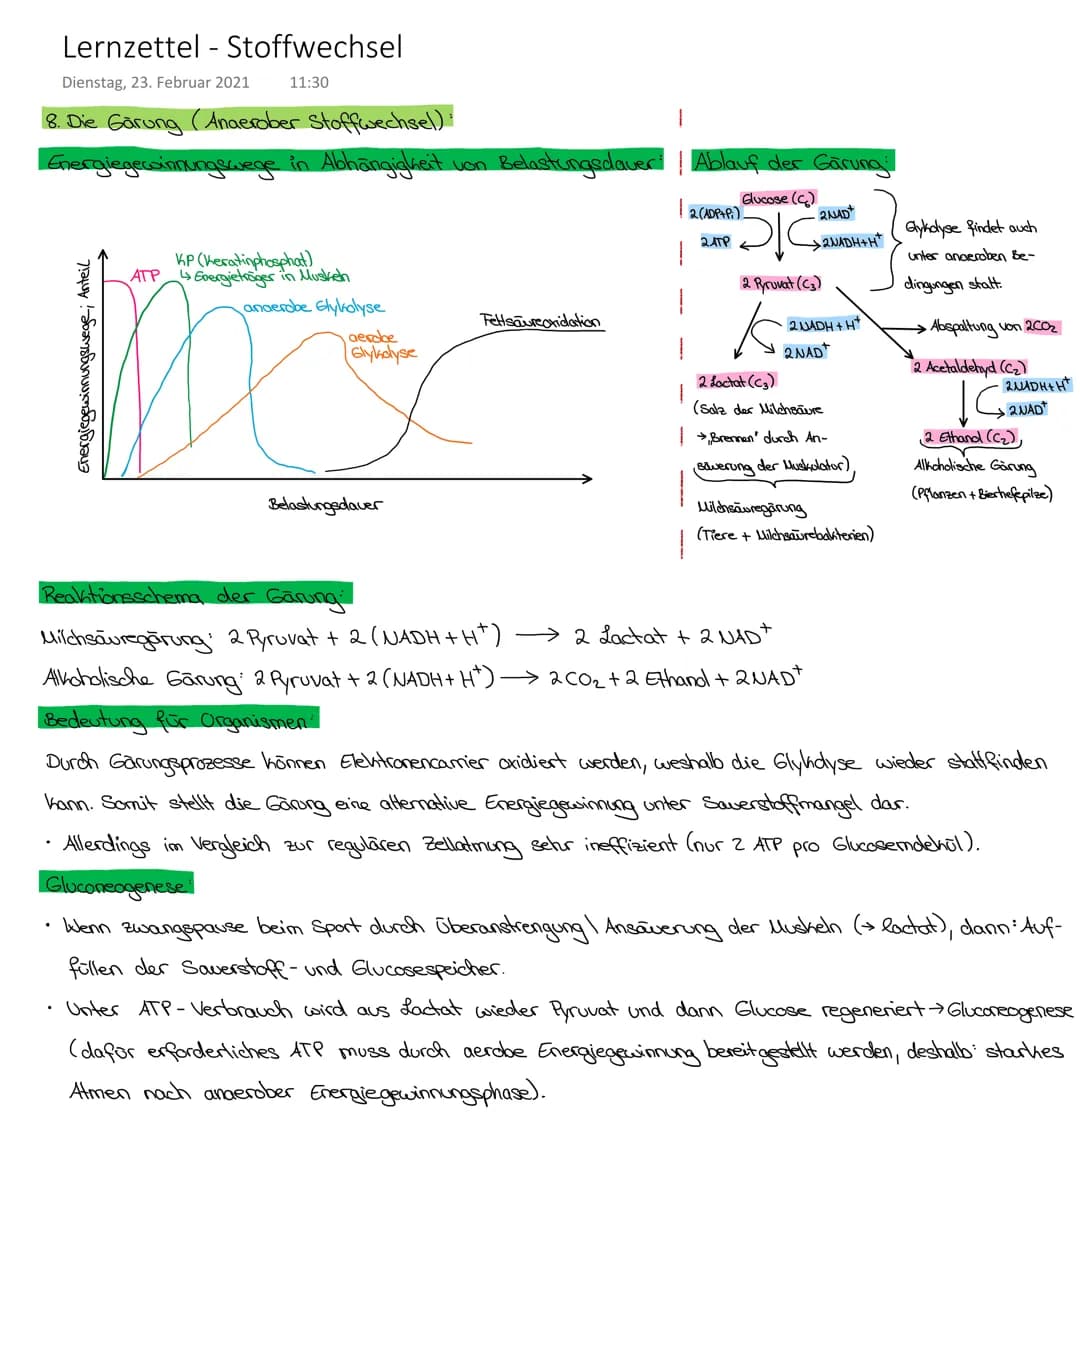 Lernzettel - Stoffwechsel
Dienstag, 23. Februar 2021 11:30
8. Die Gärung (Anaerober Stoffwechsel):
Energiegewinnungswege in Abhängigkeit von Belastungsdauer:
Energiegewinnungswege; Anteil
ATP
KP (Keratinphosphat)
↳ Energieträger in Muskeln
anaerobe Glykolyse
aerobe
Glykolyse
Fettsäureoxidation
Belastungsdauer
Ablauf der Gärung:
Glucose (C₆)
2(ADP+Pᵢ)
2NAD⁺
2ATP
2NADH+H⁺
Glykolyse findet auch
unter anaeroben Be-
dingungen statt.
2 Pyruvat (C₃)
2NADH+H⁺
2NAD⁺
→ Abspaltung von 2CO₂
2 Lactat (C₃)
(Salz der Milchsäure
→ „Brennen' durch An-
säuerung der Muskulatur)
Milchsäuregärung
(Tiere + Milchsäurebakterien)
2 Acetaldehyd (C₂)
2NADH+H⁺
2NAD⁺
2 Ethanol (C₂)
Alkoholische Gärung
(Pflanzen + Bierhefepilze)
Reaktionsschema der Gärung:
Milchsäuregärung: 2 Pyruvat + 2(NADH+H⁺) → 2 Lactat + 2NAD⁺
Alkoholische Gärung: 2 Pyruvat + 2(NADH+H⁺) → 2CO₂ + 2 Ethanol + 2NAD⁺
Bedeutung für Organismen:
Durch Gärungsprozesse können Elektronencarrier oxidiert werden, weshalb die Glykolyse wieder stattfinden
kann. Somit stellt die Gärung eine alternative Energiegewinnung unter Sauerstoffmangel dar.
· Allerdings im Vergleich zur regulären Zellatmung sehr ineffizient (nur 2 ATP pro Glucosemolekül).
Gluconeogenese:
· Wenn Zwangspause beim Sport durch Überanstrengung \ Ansäuerung der Muskeln (→ Lactat), dann: Auf-
füllen der Sauerstoff- und Glucosespeicher.
· Unter ATP-Verbrauch wird aus Lactat wieder Pyruvat und dann Glucose regeneriert → Gluconeogenese
(dafür erforderliches ATP muss durch aerobe Energiegewinnung bereitgestellt werden, deshalb: starkes
Atmen nach anaerober Energiegewinnungsphase).